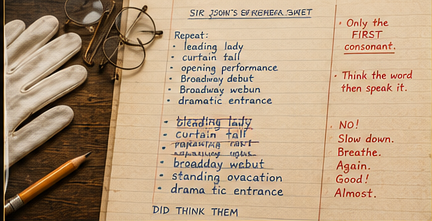 Repeat:
• leading lady
• curtain tall
• opening performance
• Broadway debut
• Broadway webun
• dramatic entrance
lady
• curtain tall
• broadday webut
• standing ovacation
• drama tic entrance
DID THINK THEM
• Only the
FIRST
consonant.
• Think the word
then speak it.
NO!
Slow down.
Breathe.
Again.
Good!
Almost.